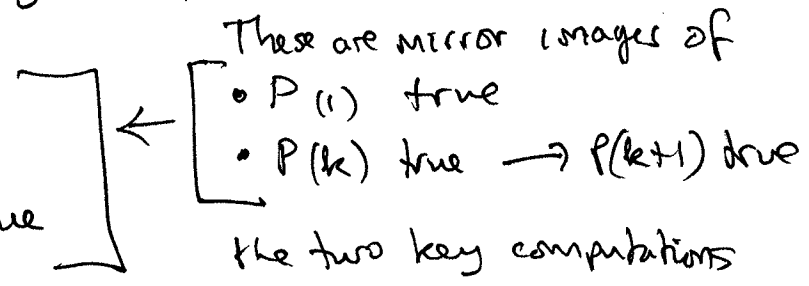 These are mirror images of
• P(1) true
← • P(k) true → P(k+1) true
the two key computations